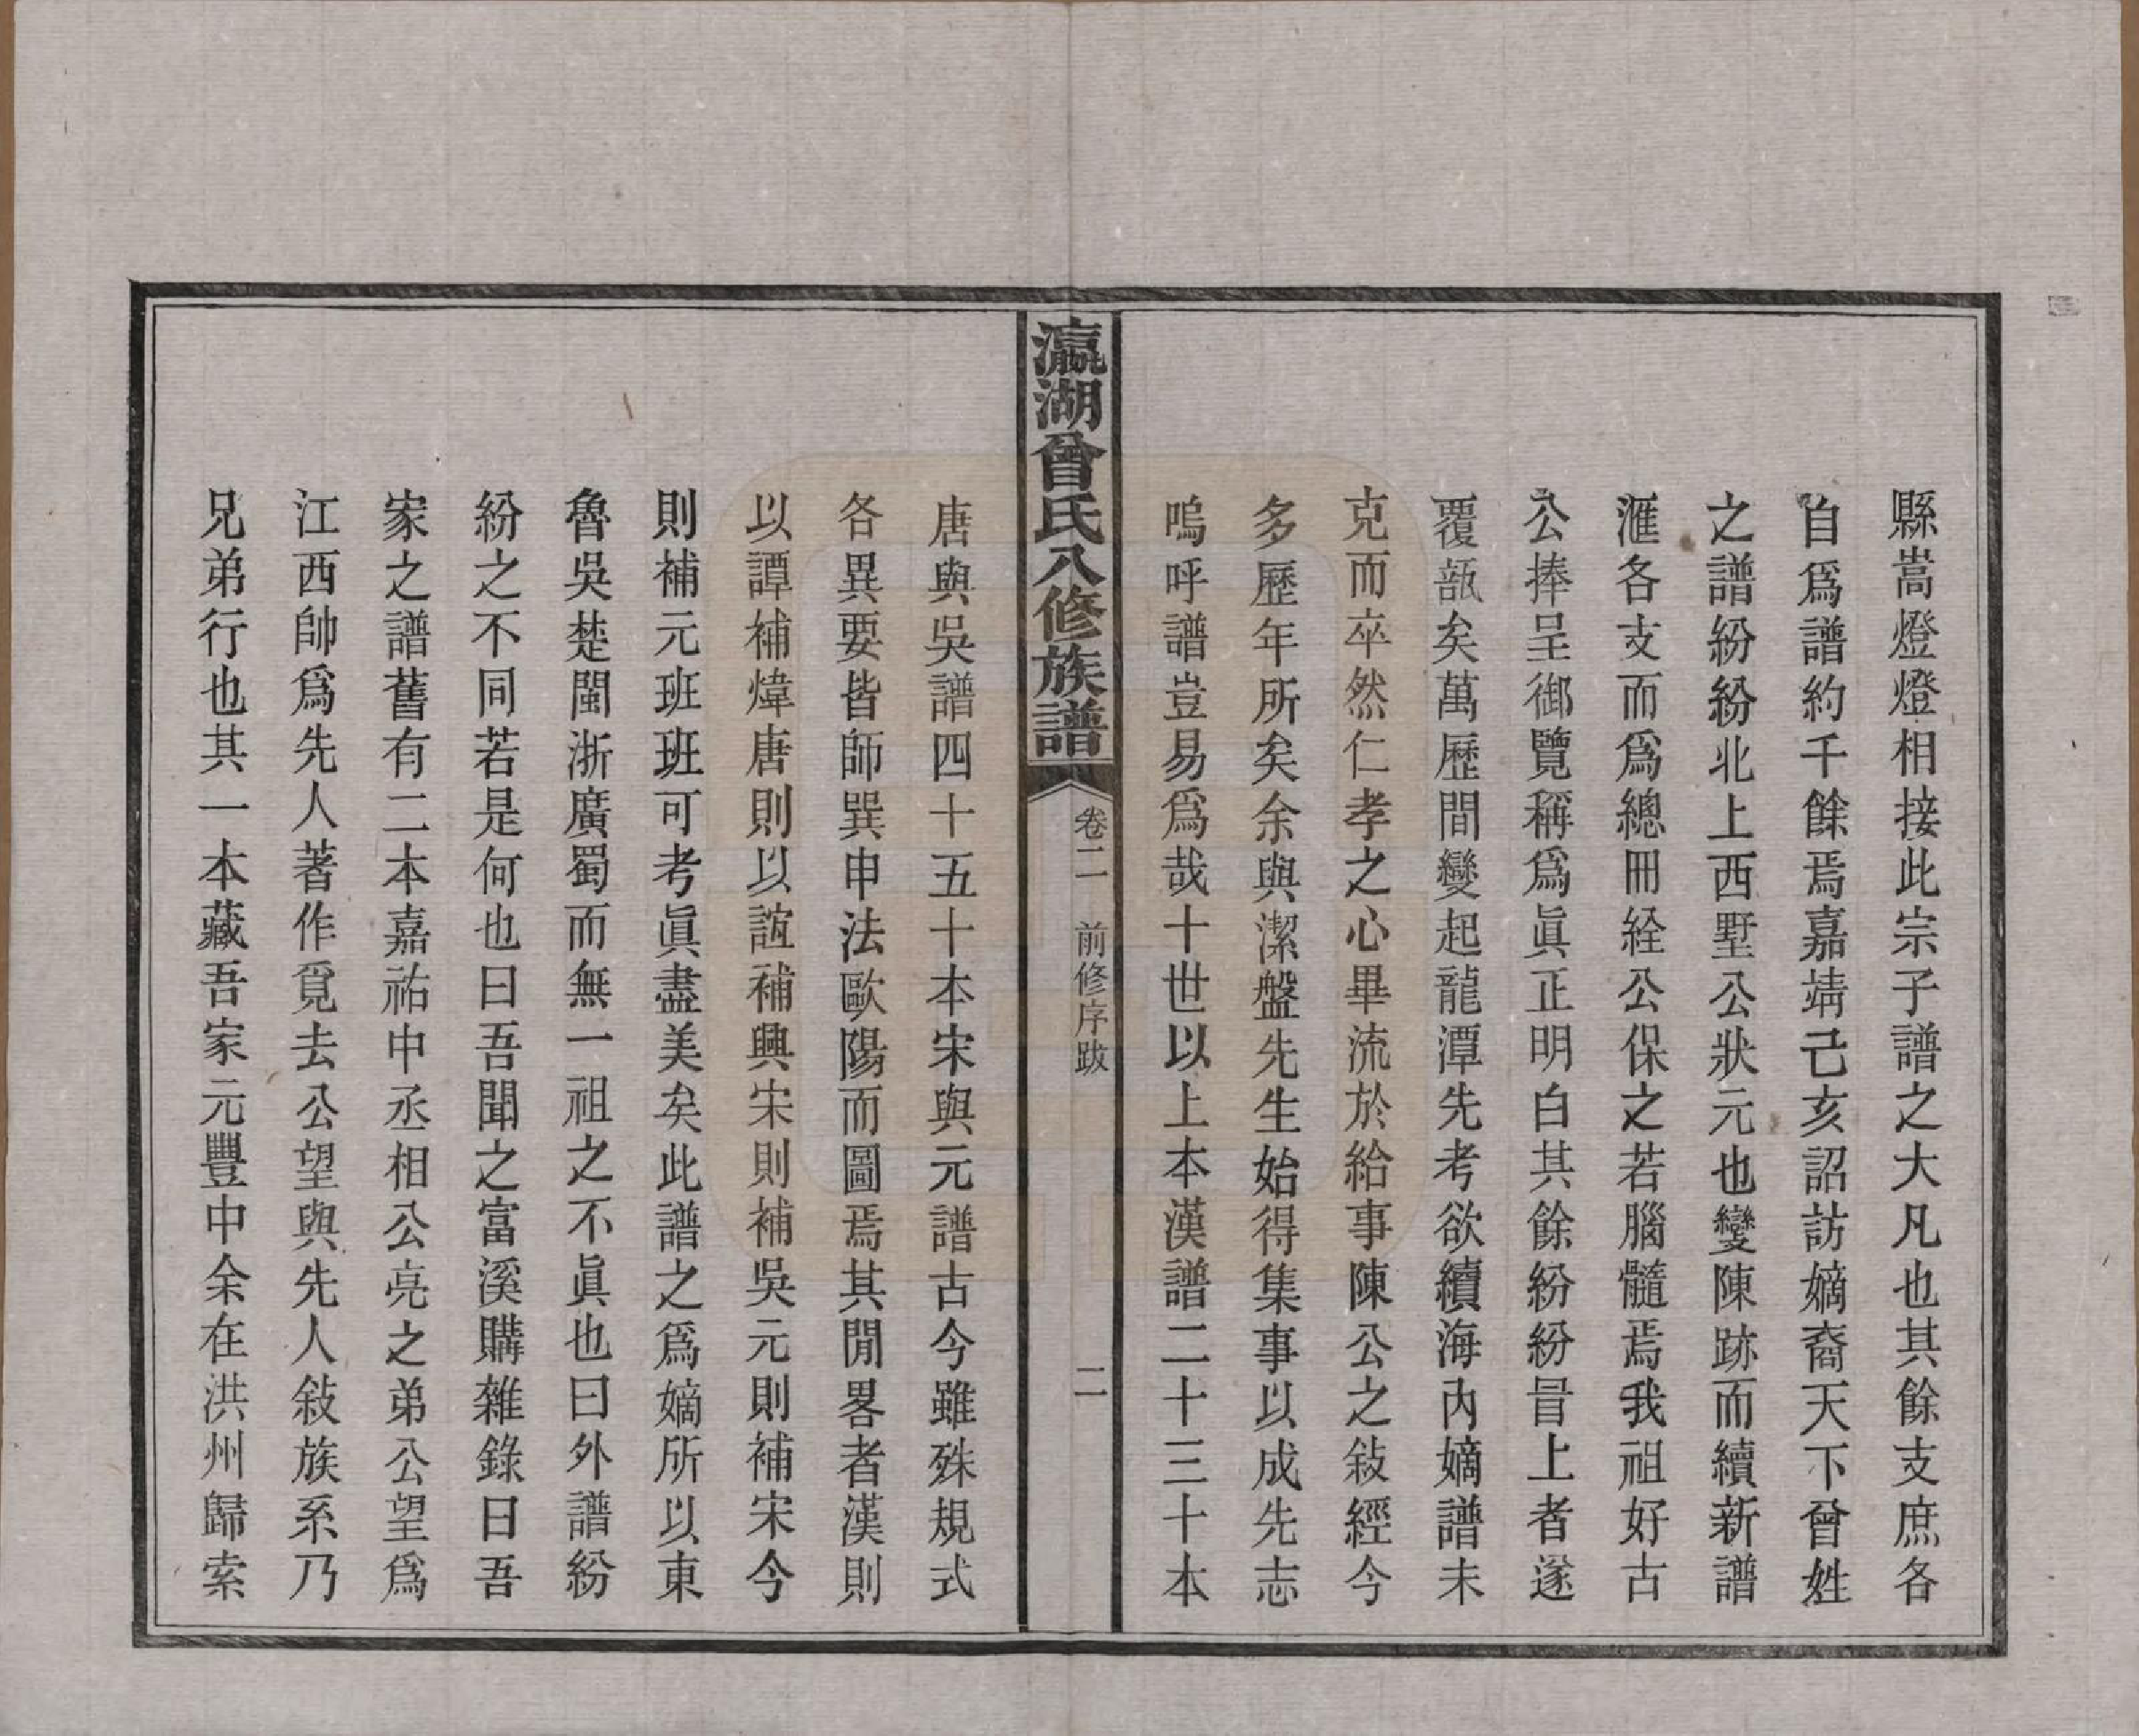 縣嵩燈燈相接此宗子譜之大凡也其餘支庶各
自爲譜約千餘焉嘉靖己亥詔訪嫡裔天下曾姓
之譜紛紛北上西墅公狀元也變陳跡而續新譜
滙各支而爲總冊経公保之若腦髓焉我祖好古
公捧呈御覽稱爲眞正明白其餘紛紛冒上者遂
覆瓿矣萬歷間變起龍潭先考欲續海內嫡譜未
克而卒然仁孝之心畢流於給事陳公之敍經今
多歷年所矣余與潔盤先生始得集事以成先志
嗚呼譜豈易爲哉十世以上本漢譜二十三十本
瀛湖曾氏八修族譜
卷二 前修序跋 二
唐與吳譜四十五十本宋與元譜古今雖殊規式
各異要皆師巽申法歐陽而圖焉其閒畧者漢則
以譚補煒唐則以誼補興宋則補吳元則補宋今
則補元班班可考眞盡美矣此譜之爲嫡所以東
魯吳楚閩浙廣蜀而無一祖之不眞也曰外譜紛
紛之不同若是何也曰吾聞之富溪購雜錄曰吾
家之譜舊有二本嘉祐中丞相公亮之弟公望爲
江西帥爲先人著作覓去公望與先人敍族系乃
兄弟行也其一本藏吾家元豐中余在洪州歸索